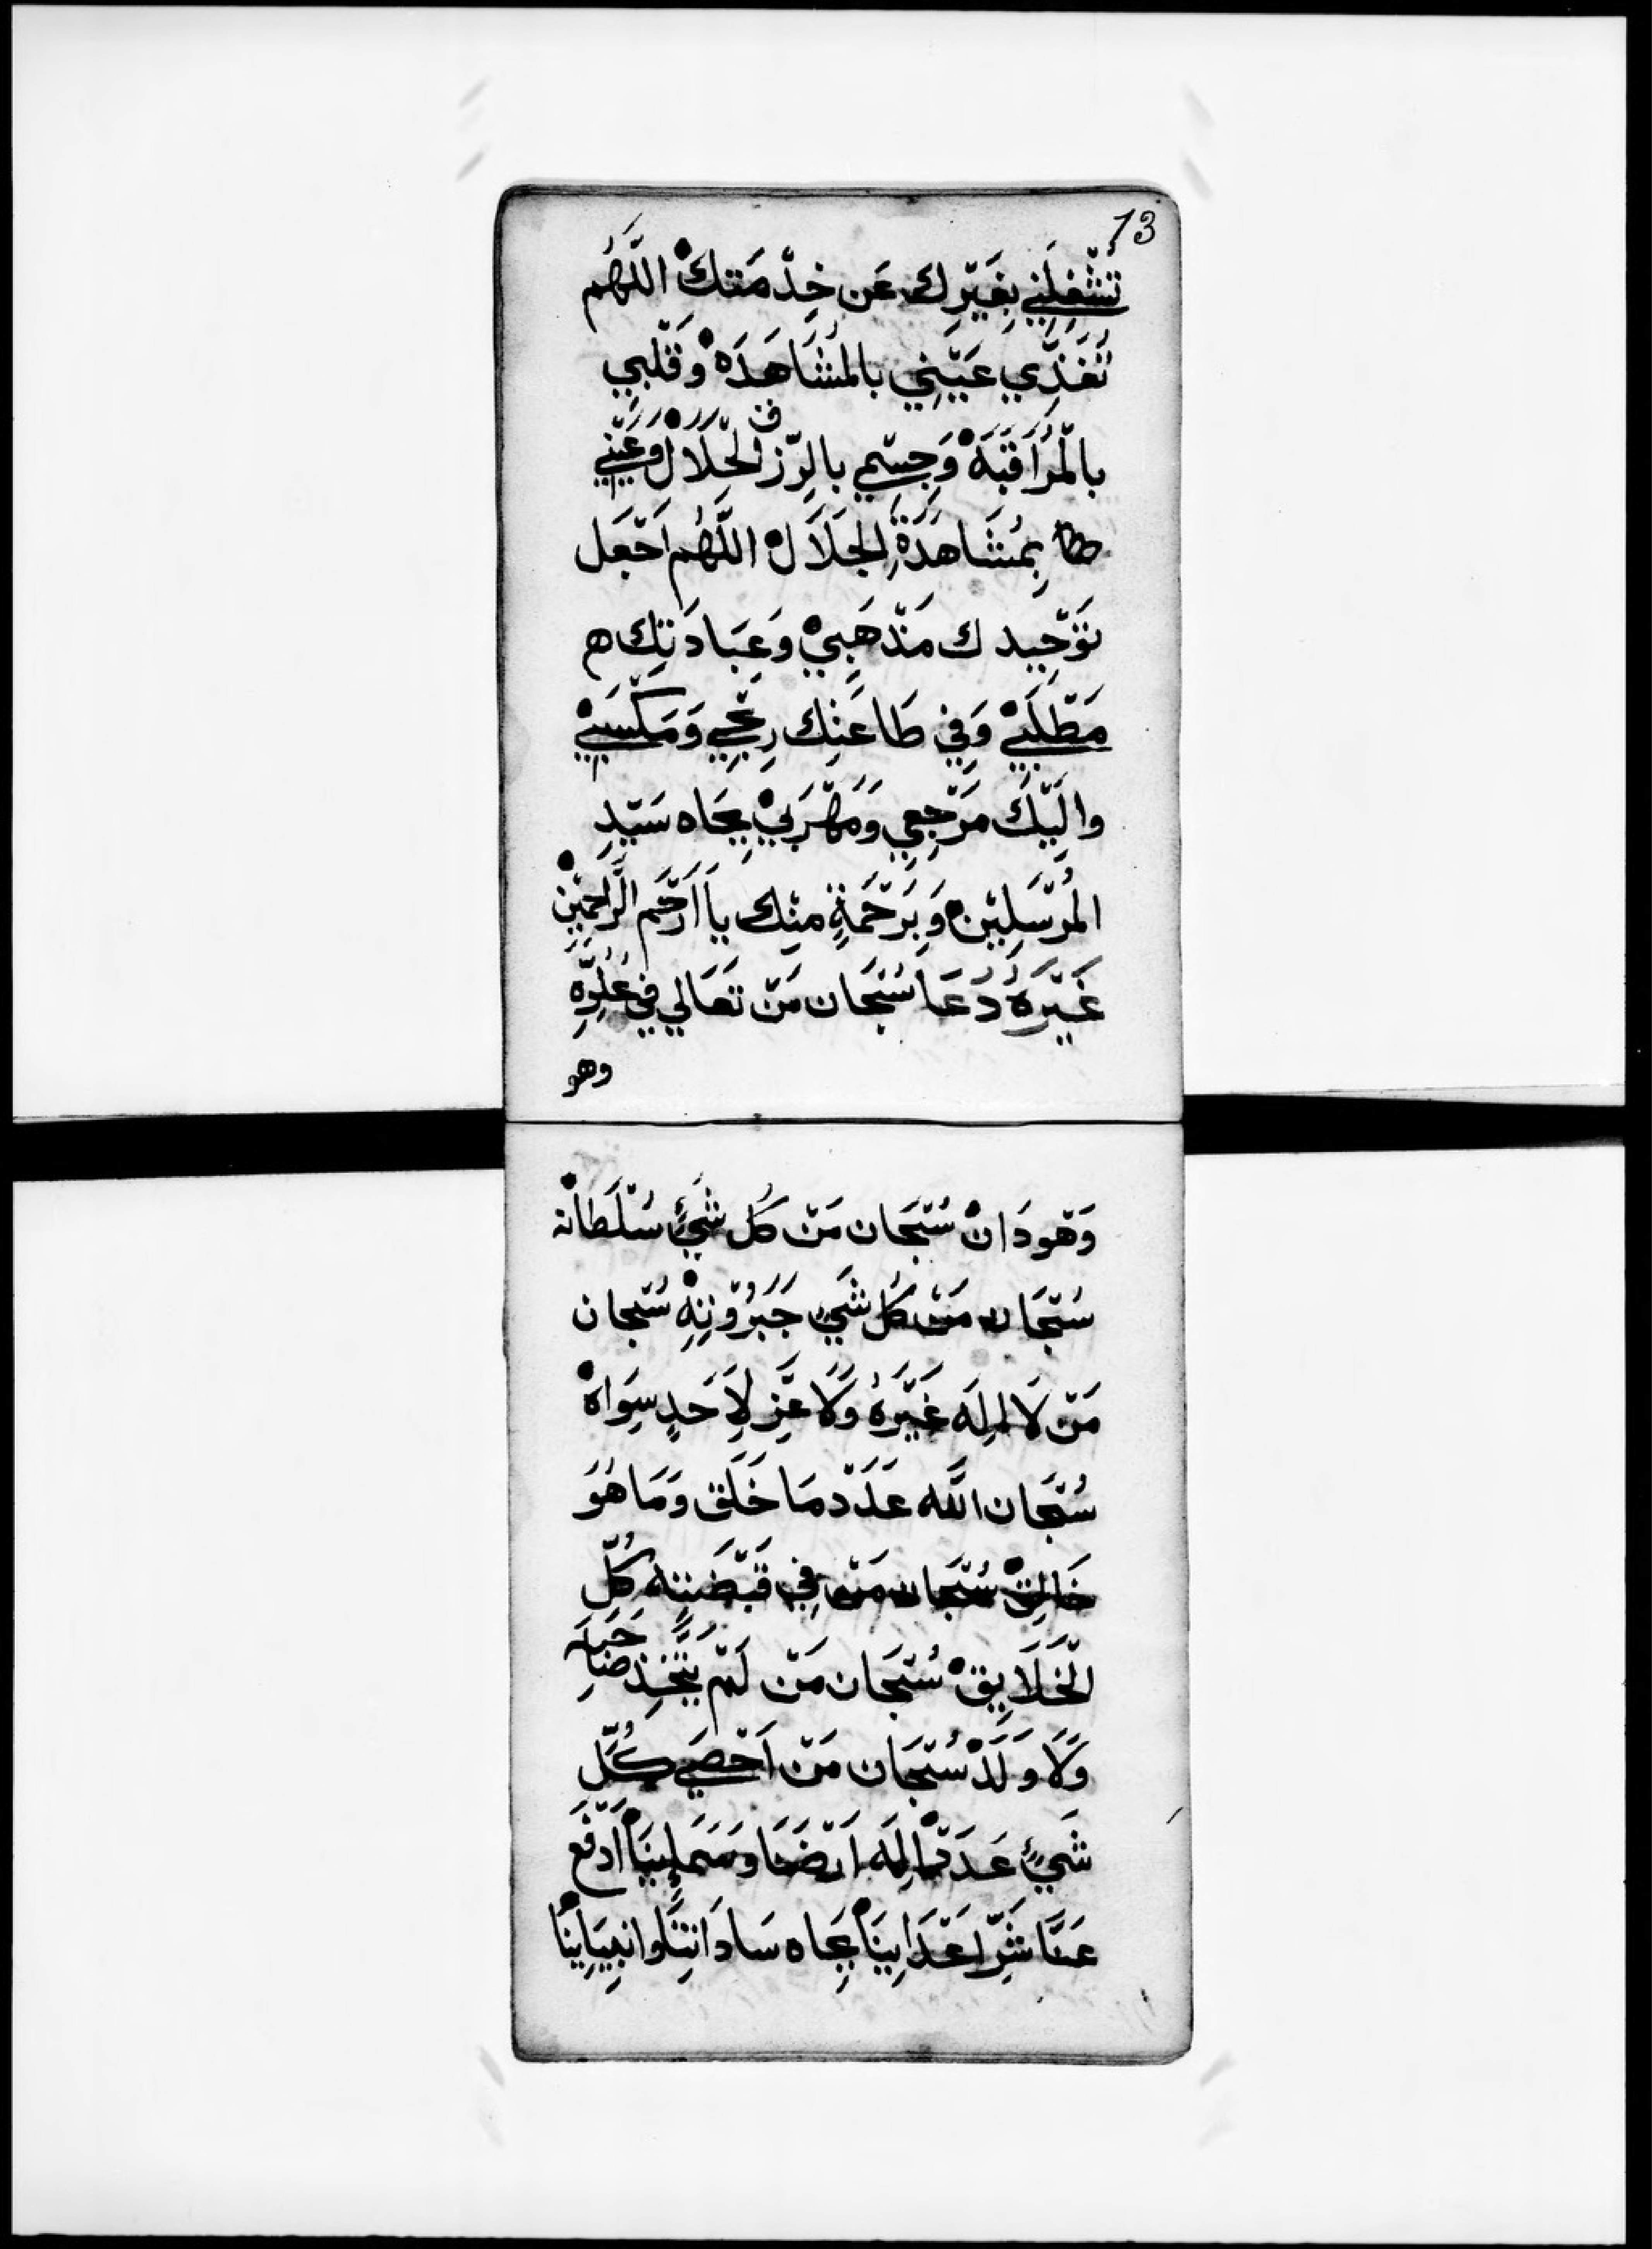 13
تَشْغِلَنِي بِغَيْرِك عَن خِدْمَتكْ اللَّهُم
تُغَذِّي عَيْنِي بالمُشَاهَدَهْ وَقَلْبِي
بالْمُرَاقَبَهْ وَجِسْمِي بالرِّزق الْحَلَالْ وَعَيْنِي
بِمُشَاهَدَةِ الجَلَالْ اللَّهُم اَجْعَل
تَوْحِيدك مَذْهَبِيْ وَعِبَادَتِك
مَطْلَبِيْ وَفِي طَاعَتِك رِبْحِي وَمَكْسَبِيْ
وَالَيْكَ مَرْجِعِي وَمَهْرَبِيْ بِجَاه سَيِّدِ
المُرْسَلِيْن وَبِرَحْمَةٍ مِنك يَا اَرْحَم الرَّاحِمِيْن
غَيْرَهُ دُعَا سُبْحَان مَنْ تَعَالي فِي عُلُوِّهِ
وهو
وَهْو دَانْ سُبْحَان مَنْ كُل شَيْءٍ سُلْطَانه
سُبْحَان مَنْ كُل شَيْ جَبَرُوْتِهْ سُبحان
مَنْ لَا اِلَه غَيْرَهُ وَلَا عِز لِاَحَدٍ سِوَاهْ
سُبْحَان اللَّه عَدَدْ مَا خَلَق وَمَا هُوَ
خَالِقْ سُبْحَان مَنْ فِي قَبْضَتِه كُلّ
الْخَلَايِقْ سُبْحَان مَنْ لَمْ يَتَّخِذ صَاحِبَه
وَلَا وَلَدْ سُبْحَان مَنْ اَحْصَي كُلّ
شَيْءٍ عَدَدْ اِلَه اَرْضَنَا وَسَمَايِنَا اَدْفَع
عَنَّا شَرّ اَعْدَايِنَا بِجَاه سَادَاتِنَا وانبِيَايِنَا